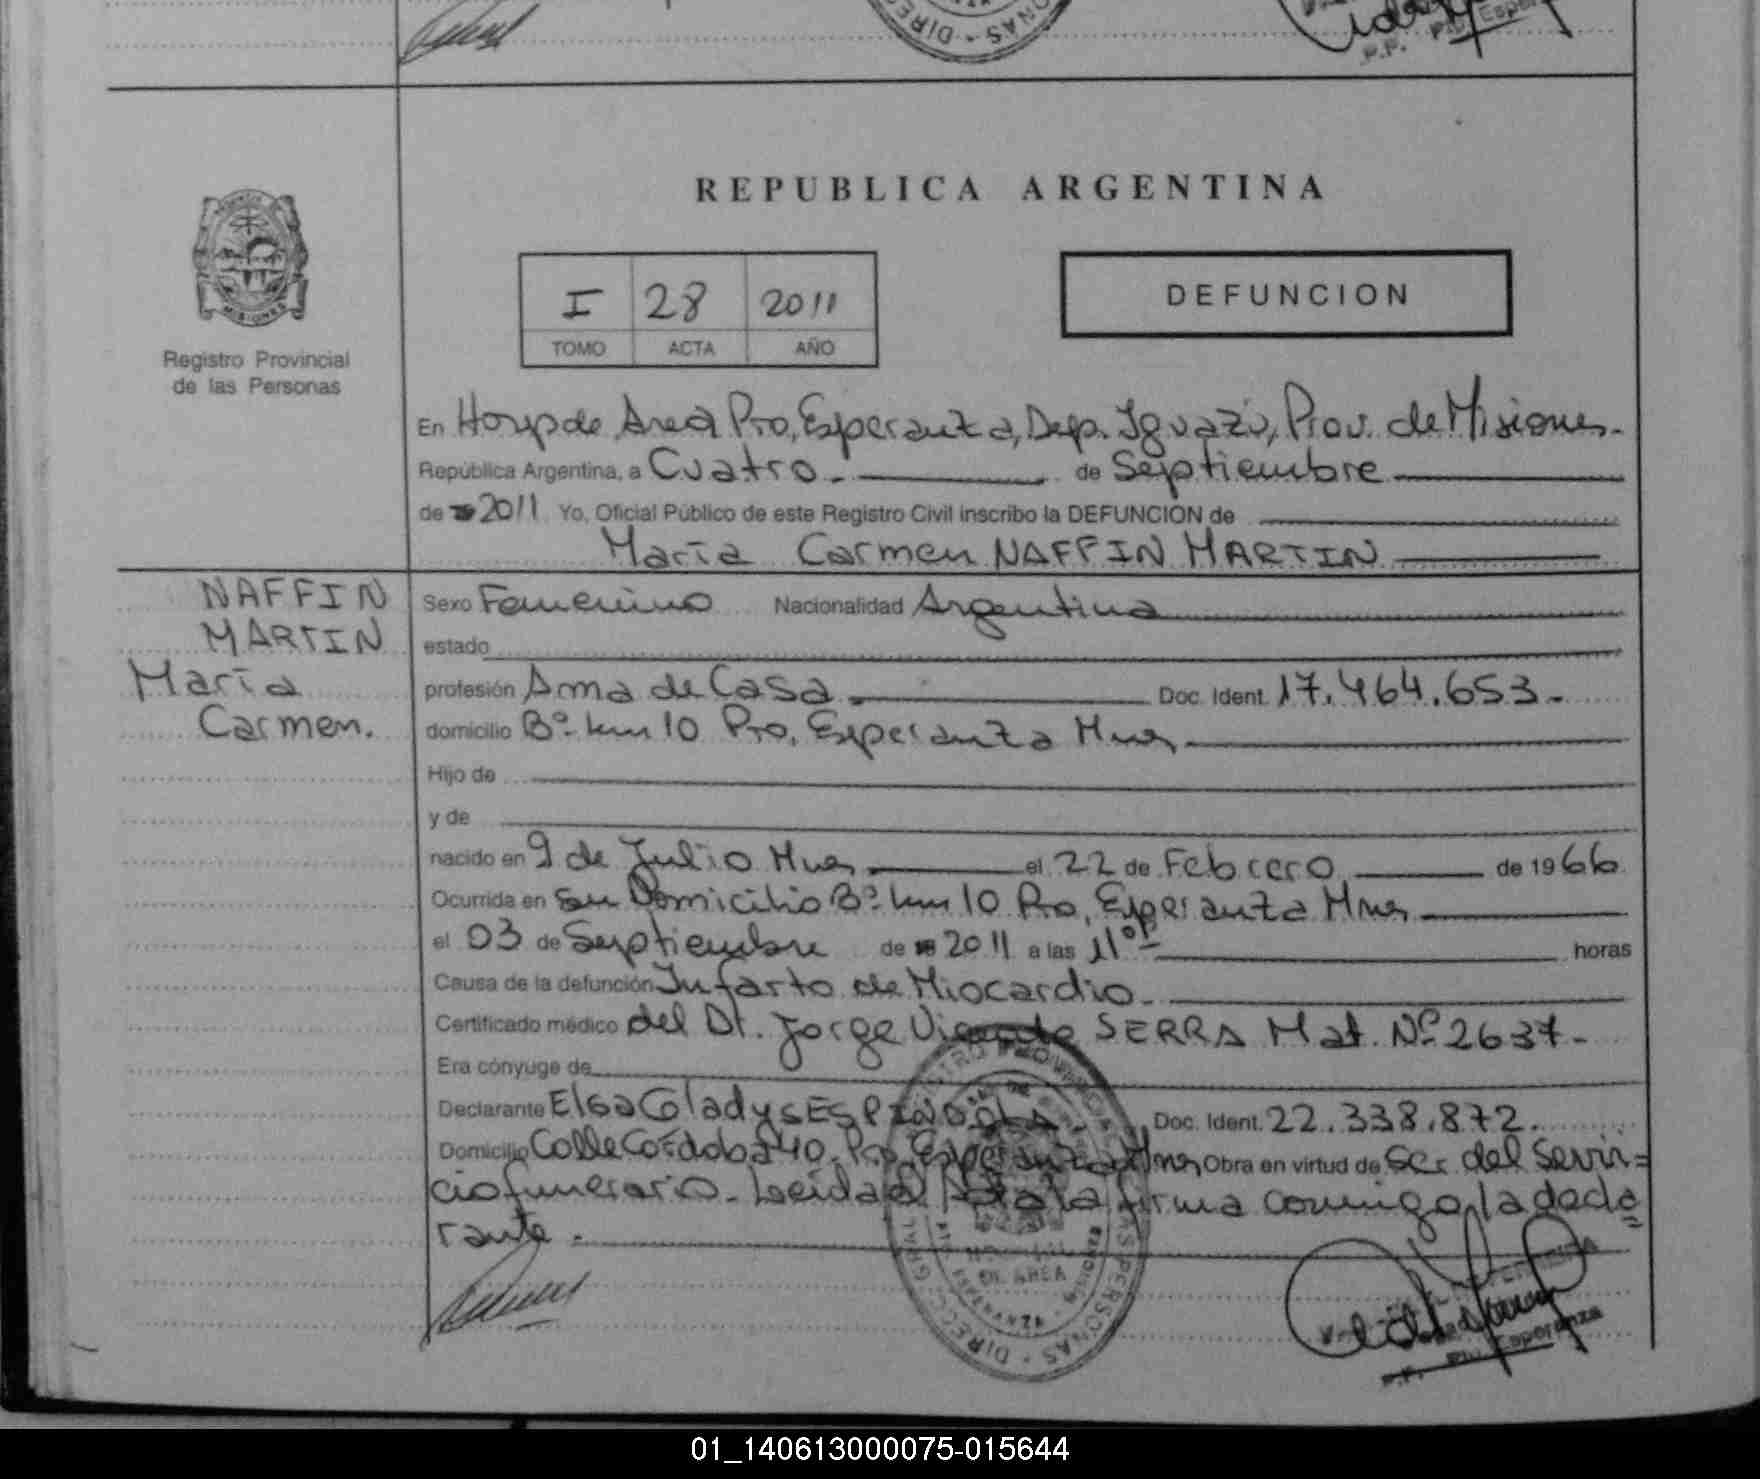 REPUBLICA ARGENTINA
MISIONES
Registro Provincial
de las Personas
I 28 2011
TOMO ACTA AÑO
DEFUNCION
En Hosp de Area Pto, Esperanza, Dep. Iguazú, Prov. de Misiones.
República Argentina, a Cuatro. de Septiembre
de 2011 Yo, Oficial Público de este Registro Civil inscribo la DEFUNCION de
María Carmen NAFFIN MARTIN
NAFFIN
MARTIN
María
Carmen.
Sexo Femenino Nacionalidad Argentina
estado
profesión Ama de Casa. Doc. Ident. 17.464.653.
domicilio Bº km 10 Pto, Esperanza Mnes
Hijo de
y de
nacido en 9 de Julio Mnes el 22 de Febrero de 1966
Ocurrida en su Domicilio Bº km 10 Pto, Esperanza Mnes
el 03 de Septiembre de 2011 a las 11 horas
Causa de la defunción Infarto de Miocardio.
Certificado médico del Dr. Jorge Vicente SERRA Mat. Nº 2637.
Era cónyuge de
Declarante Elsa Gladys ESPINDOLA. Doc. Ident. 22.338.872.
Domicilio Calle Córdoba 240. Pto, Esperanza Mnes Obra en virtud de Ser del Servi=
cio funerario. Leida el Acta la firma conmigo, la decla=
rante.
DE AREA
Esperanza
01_140613000075-015644